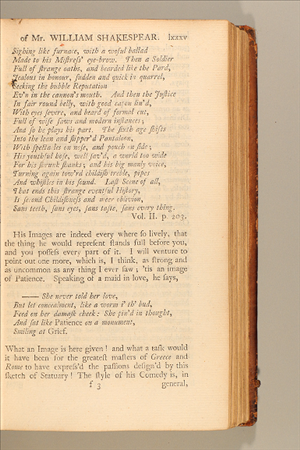 of Mr. WILLIAM SHAKESPEAR. lxxxv
Sighing like furnace, with a woful ballad
Made to his Mistress' eye-brow. Then a Soldier
Full of strange oaths, and bearded like the Pard,
Jealous in honour, sudden and quick in quarrel,
Seeking the bubble Reputation
Ev'n in the cannon's mouth. And then the Justice
In fair round belly, with good capon lin'd,
With eyes severe, and beard of formal cut,
Full of wise saws and modern instances;
And so he plays his part. The sixth age shifts
Into the lean and slipper'd Pantaloon,
With spectacles on nose, and pouch on side;
His youthful hose, well sav'd, a world too wide
For his shrunk shanks; and his big manly voice,
Turning again tow'rd childish treble, pipes
And whistles in his sound. Last Scene of all,
That ends this strange eventful History,
Is second Childishness and meer oblivion,
Sans teeth, sans eyes, sans taste, sans every thing.
Vol. II. p. 203.
His Images are indeed every where so lively, that
the thing he would represent stands full before you,
and you possess every part of it. I will venture to
point out one more, which is, I think, as strong and
as uncommon as any thing I ever saw; 'tis an image
of Patience. Speaking of a maid in love, he says,
—— She never told her love,
But let concealment, like a worm i' th' bud,
Feed on her damask cheek: She pin'd in thought,
And sat like Patience on a monument,
Smiling at Grief.
What an Image is here given! and what a task would
it have been for the greatest masters of Greece and
Rome to have express'd the passions design'd by this
sketch of Statuary! The style of his Comedy is, in
f 3 general,